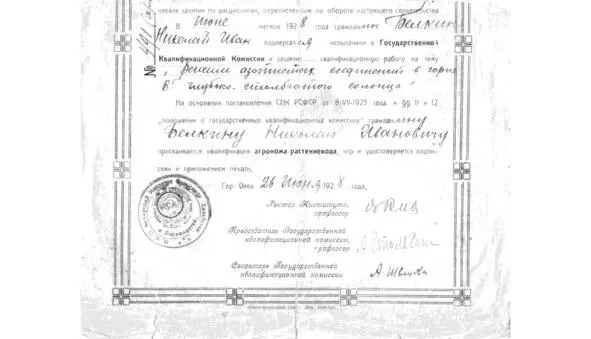 ческие занятия по дисциплинам, перечисленным на обороте настоящего свидетельства
В июне месяце 1928 года гражданин Белкин
Николай Иван подвергался испытаниям в Государственной
Квалификационной Комиссии и защитил квалификационную работу на тему
№ 491
" азотистых соединений в
глубоко-столбчатого солонца"
На основании постановления СНК РСФСР от 8-VII-1925 года и §§ 11 и 12
"положения о государственных квалификационных комиссиях" гражданину
Белкину Николаю Ивановичу
присваивается квалификация агронома-растениевода, что и удостоверяется подпи-
сями и приложением печати.
Гор. Омск 26 Июня 1928 года.
Ректор Института,
профессор
Председатель Государственной
квалификационной комиссии,
профессор
Секретарь Государственной
квалификационной комиссии